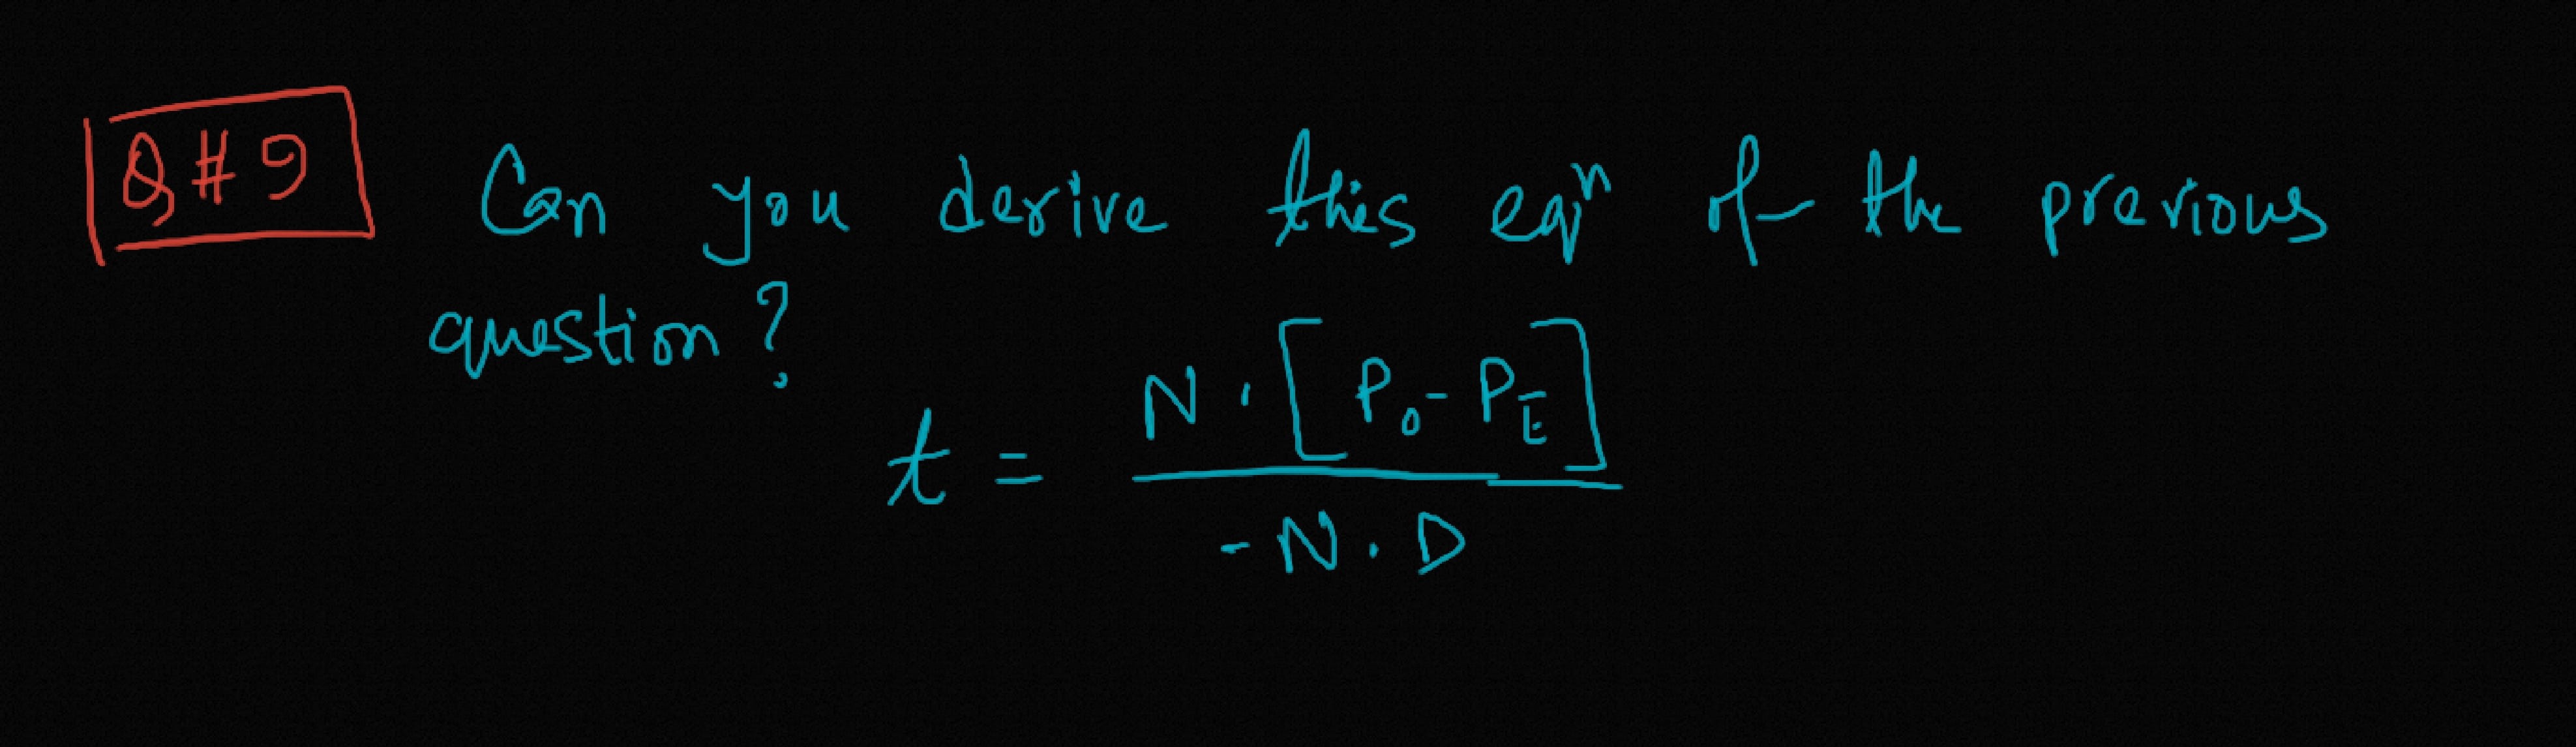 Q#9 Can you derive this eqⁿ of the previous
question?
t = N · [P₀ - P_E] / -N · D